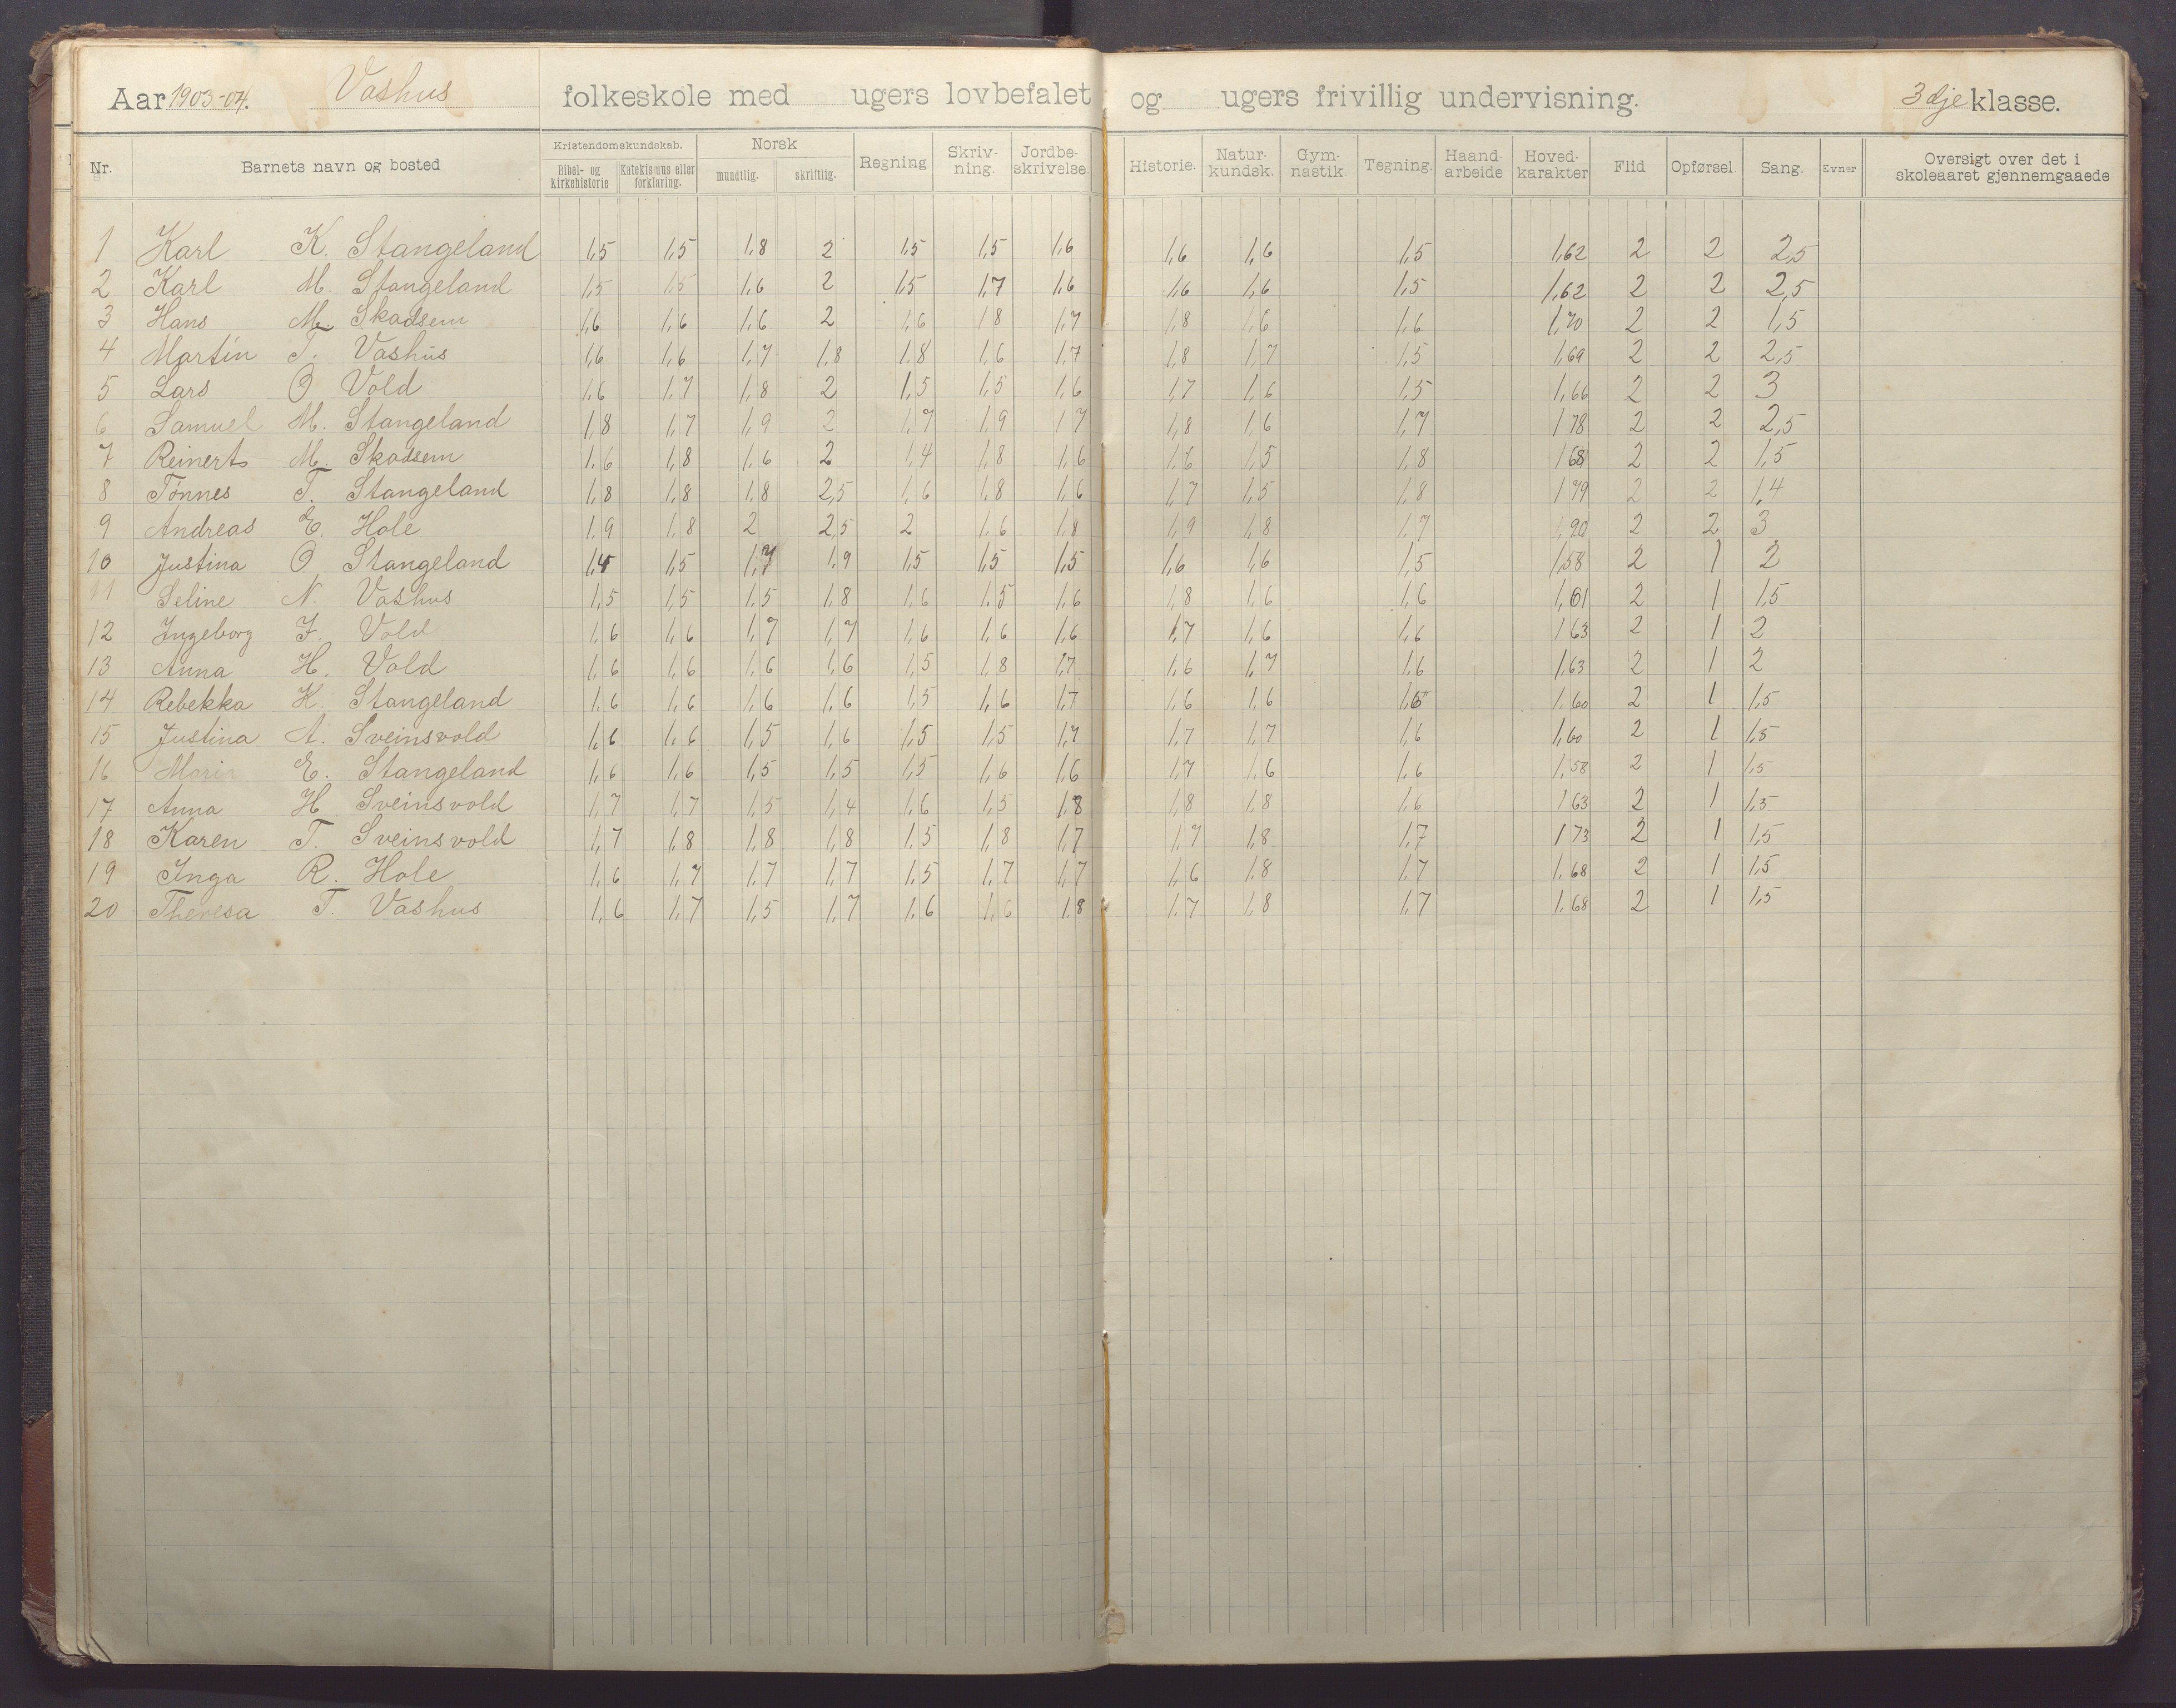 Aar 1903-04. Vashus folkeskole med ugers lovbefalet og ugers frivillig undervisning. 3dje klasse.
Nr. Barnets navn og bosted Kristendomskundskab. Bibel- og kirkehistorie Katekismus eller forklaring. Norsk mundtlig. skriftlig. Regning Skriv-ning. Jordbe-skrivelse Historie. Natur-kundsk. Gym-nastik Tegning. Haand-arbeide Hoved-karakter Flid Opførsel Sang. Evner Oversigt over det i skoleaaret gjennemgaaede
1 Karl K. Stangeland 1,5 1,5 1,8 2 1,5 1,5 1,6 1,6 1,6 1,5 1,62 2 2 2,5
2 Karl M. Stangeland 1,5 1,5 1,6 2 1,5 1,7 1,6 1,6 1,6 1,5 1,62 2 2 2,5
3 Hans M. Skadsem 1,6 1,6 1,6 2 1,6 1,8 1,7 1,8 1,6 1,6 1,70 2 2 1,5
4 Martin T. Vashus 1,6 1,6 1,7 1,8 1,8 1,6 1,7 1,8 1,7 1,5 1,69 2 2 2,5
5 Lars O Vold 1,6 1,7 1,8 2 1,5 1,5 1,6 1,7 1,6 1,5 1,66 2 2 3
6 Samuel M. Stangeland 1,8 1,7 1,9 2 1,7 1,9 1,7 1,8 1,6 1,7 1,78 2 2 2,5
7 Reinert M. Skadsem 1,6 1,8 1,6 2 1,4 1,8 1,6 1,6 1,5 1,8 1,68 2 2 1,5
8 Tønnes T. Stangeland 1,8 1,8 1,8 2,5 1,6 1,8 1,6 1,7 1,5 1,8 1,79 2 2 1,4
9 Andreas E. Hole 1,9 1,8 2 2,5 2 1,6 1,8 1,9 1,8 1,7 1,90 2 2 3
10 Justina O Stangeland 1,4 1,5 1,7 1,9 1,5 1,5 1,5 1,6 1,6 1,5 1,58 2 1 2
11 Seline N. Vashus 1,5 1,5 1,5 1,8 1,6 1,5 1,6 1,8 1,6 1,6 1,61 2 1 1,5
12 Ingeborg J. Vold 1,6 1,6 1,7 1,7 1,6 1,6 1,6 1,7 1,6 1,6 1,63 2 1 2
13 Anna H. Vold 1,6 1,6 1,6 1,6 1,5 1,8 1,7 1,6 1,7 1,6 1,63 2 1 2
14 Rebekka K. Stangeland 1,6 1,6 1,6 1,6 1,5 1,6 1,7 1,6 1,6 1,6 1,60 2 1 1,5
15 Justina A. Sveinsvold 1,6 1,6 1,5 1,6 1,5 1,5 1,7 1,7 1,7 1,6 1,60 2 1 1,5
16 E. Stangeland 1,6 1,6 1,5 1,5 1,5 1,6 1,6 1,7 1,6 1,6 1,58 2 1 1,5
17 Anna H Sveinsvold 1,7 1,7 1,5 1,4 1,6 1,5 1,8 1,8 1,8 1,6 1,63 2 1 1,5
18 Karen T. Sveinsvold 1,7 1,8 1,8 1,8 1,5 1,8 1,7 1,7 1,8 1,7 1,73 2 1 1,5
19 Inga R. Hole 1,6 1,7 1,7 1,7 1,5 1,7 1,7 1,6 1,8 1,7 1,68 2 1 1,5
20 Theresa T. Vashus 1,6 1,7 1,5 1,7 1,6 1,6 1,8 1,7 1,8 1,7 1,68 2 1 1,5